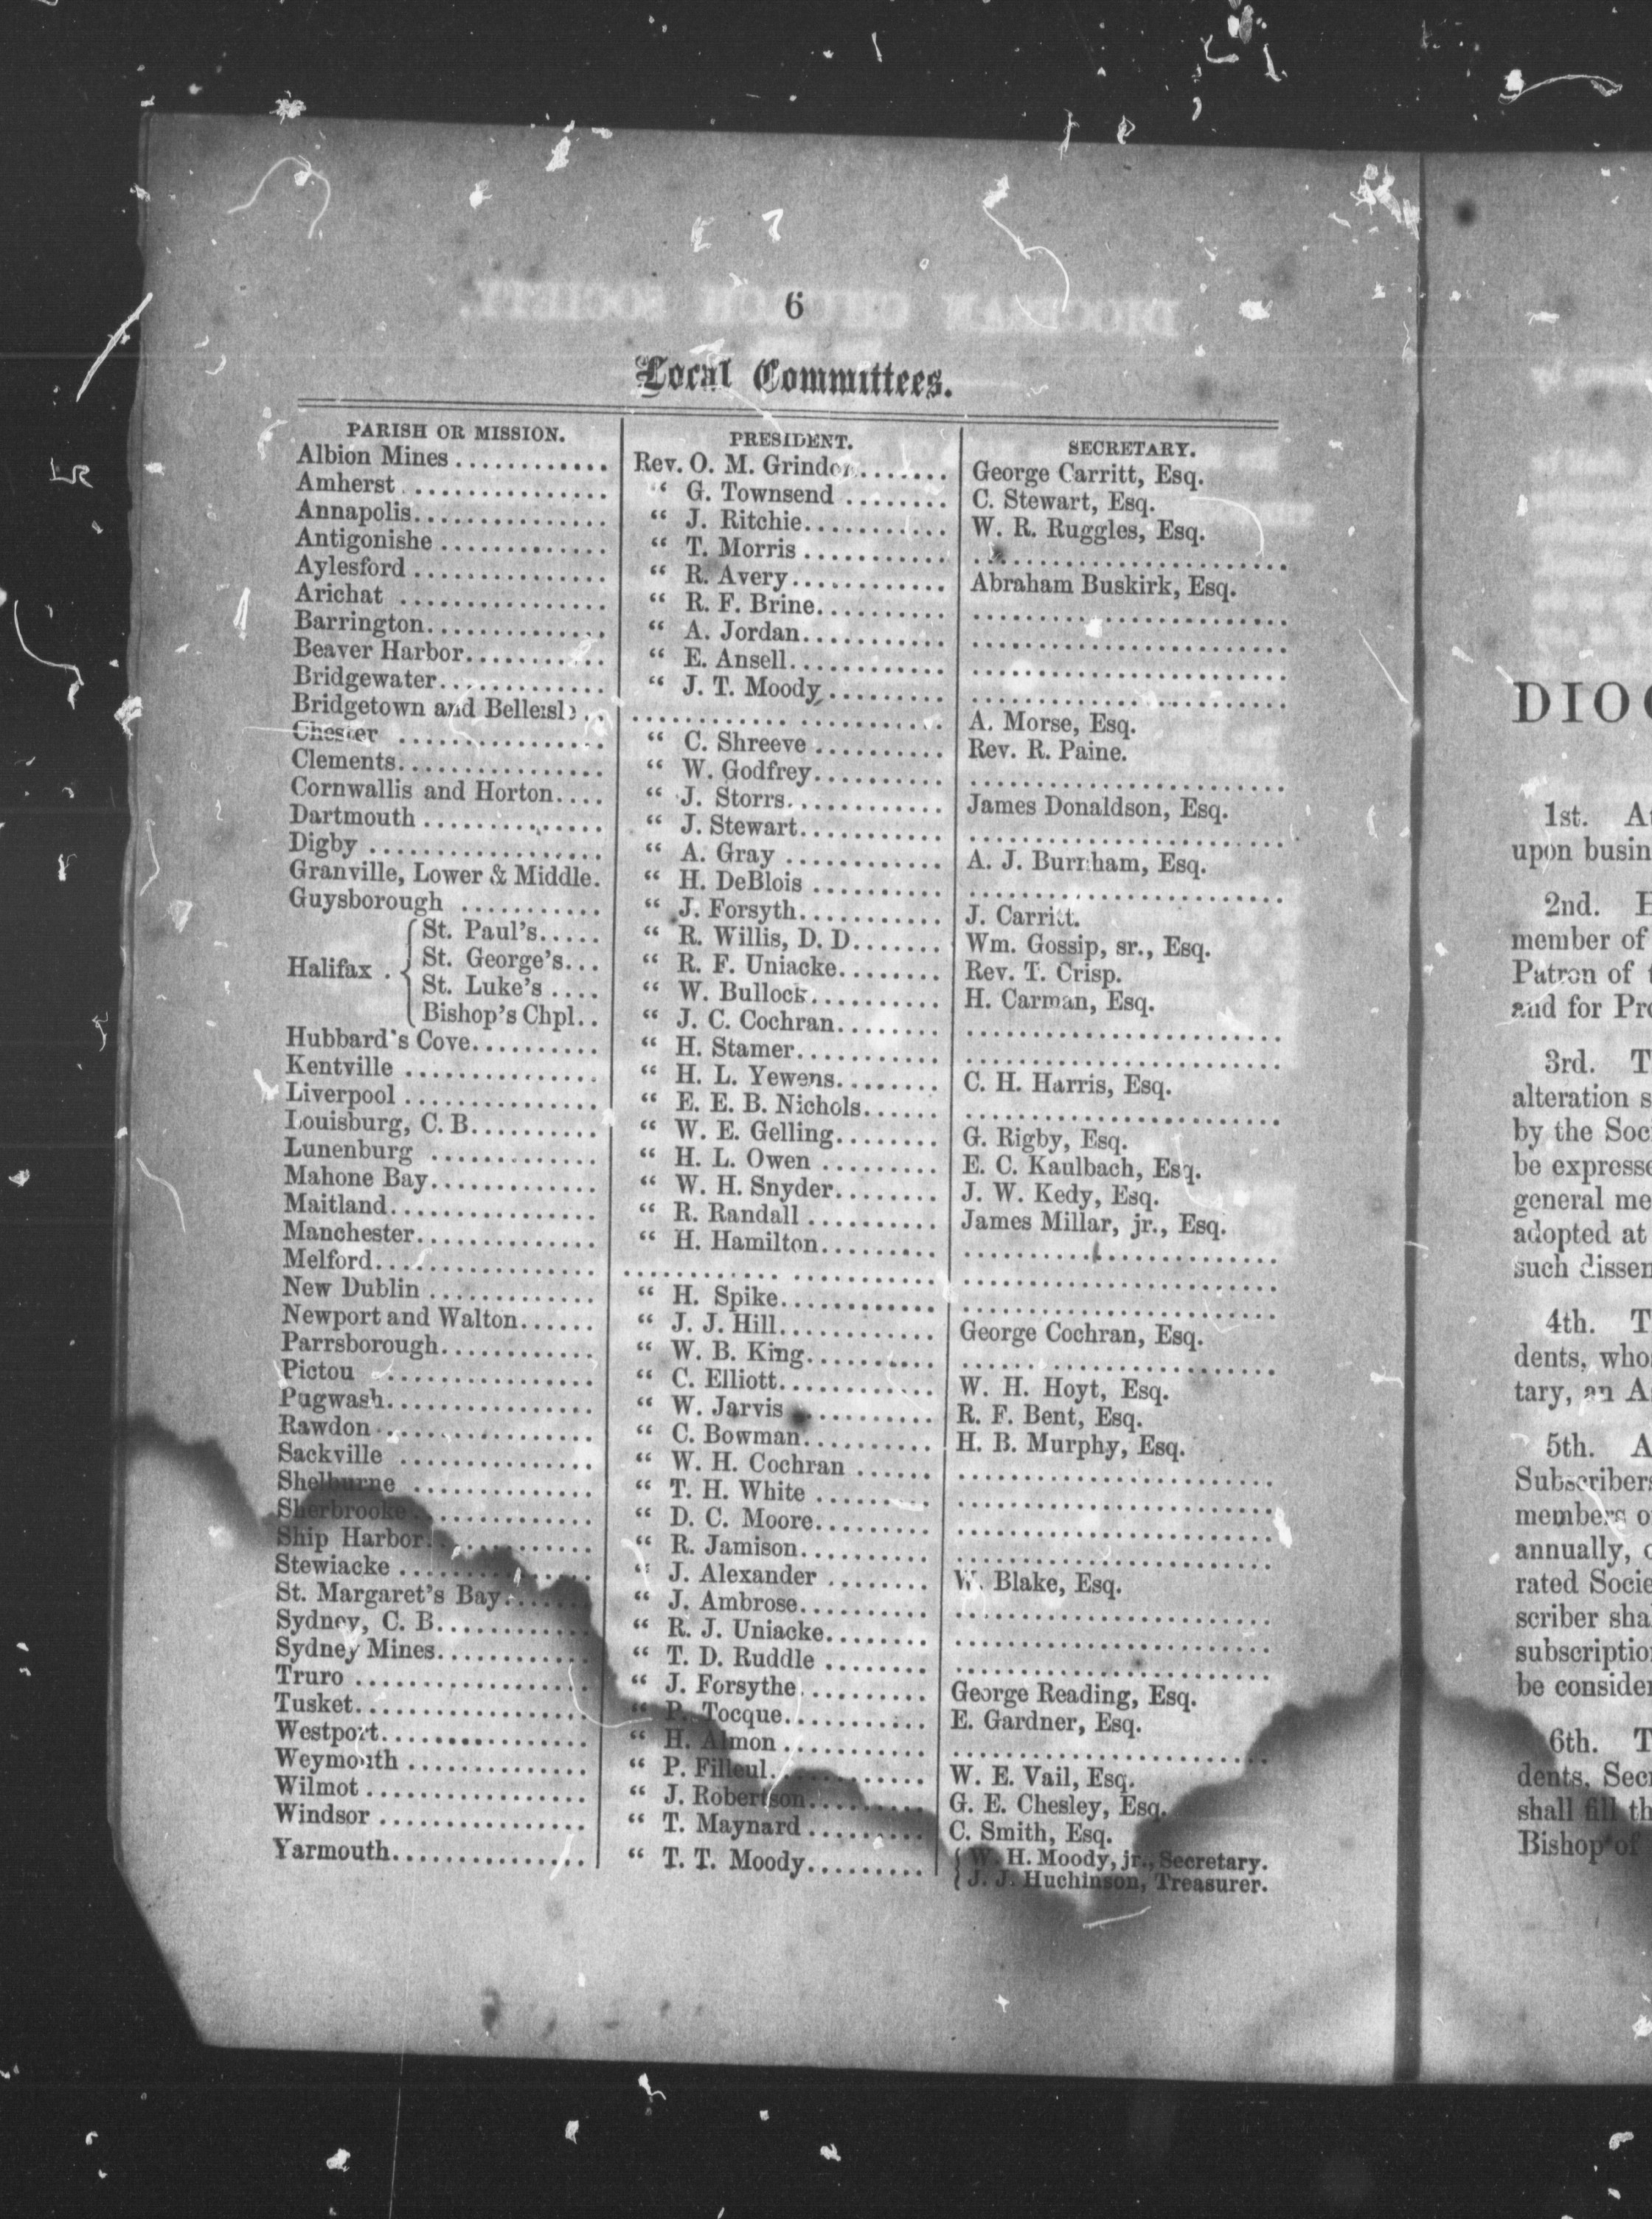 6
Local Committees.
PARISH OR MISSION. PRESIDENT. SECRETARY.
Albion Mines ............ Rev. O. M. Grindon....... George Carritt, Esq.
Amherst ............... “ G. Townsend ........ C. Stewart, Esq.
Annapolis............... “ J. Ritchie........... W. R. Ruggles, Esq.
Antigonishe ............. “ T. Morris ........... ........................
Aylesford ............... “ R. Avery............ Abraham Buskirk, Esq.
Arichat ................ “ R. F. Brine.......... ........................
Barrington.............. “ A. Jordan........... ........................
Beaver Harbor........... “ E. Ansell............ ........................
Bridgewater............. “ J. T. Moody......... ........................
Bridgetown and Belleisle .. ........................ A. Morse, Esq.
Chester ................ “ C. Shreeve .......... Rev. R. Paine.
Clements................ “ W. Godfrey.......... ........................
Cornwallis and Horton.... “ J. Storrs............ James Donaldson, Esq.
Dartmouth .............. “ J. Stewart........... ........................
Digby .................. “ A. Gray ............ A. J. Burnham, Esq.
Granville, Lower & Middle. “ H. DeBlois .......... ........................
Guysborough ........... “ J. Forsyth........... J. Carritt.
Halifax . { St. Paul's..... “ R. Willis, D. D....... Wm. Gossip, sr., Esq.
St. George's... “ R. F. Uniacke........ Rev. T. Crisp.
St. Luke's .... “ W. Bullock.......... H. Carman, Esq.
Bishop's Chpl.. “ J. C. Cochran........ ........................
Hubbard's Cove.......... “ H. Stamer........... ........................
Kentville ............... “ H. L. Yewens........ C. H. Harris, Esq.
Liverpool ............... “ E. E. B. Nichols...... ........................
Louisburg, C. B.......... “ W. E. Gelling........ G. Rigby, Esq.
Lunenburg ............. “ H. L. Owen ......... E. C. Kaulbach, Esq.
Mahone Bay............. “ W. H. Snyder........ J. W. Kedy, Esq.
Maitland................ “ R. Randall .......... James Millar, jr., Esq.
Manchester.............. “ H. Hamilton......... ........................
Melford................. ........................ ........................
New Dublin ............. “ H. Spike............ ........................
Newport and Walton...... “ J. J. Hill............ George Cochran, Esq.
Parrsborough............ “ W. B. King.......... ........................
Pictou ................ “ C. Elliott............ W. H. Hoyt, Esq.
Pugwash................ “ W. Jarvis .......... R. F. Bent, Esq.
Rawdon ................ “ C. Bowman.......... H. B. Murphy, Esq.
Sackville ............... “ W. H. Cochran ...... ........................
Shelburne .............. “ T. H. White ......... ........................
Sherbrooke.............. “ D. C. Moore......... ........................
Ship Harbor............. “ R. Jamison.......... ........................
Stewiacke ............... “ J. Alexander ........ W. Blake, Esq.
St. Margaret's Bay....... “ J. Ambrose.......... ........................
Sydney, C. B............ “ R. J. Uniacke........ ........................
Sydney Mines............ “ T. D. Ruddle ........ ........................
Truro .................. “ J. Forsythe.......... George Reading, Esq.
Tusket.................. “ P. Tocque........... E. Gardner, Esq.
Westport................ “ H. Almon ........... ........................
Weymouth .............. “ P. Filleul............ W. E. Vail, Esq.
Wilmot ................. “ J. Robertson......... G. E. Chesley, Esq.
Windsor ................ “ T. Maynard ......... C. Smith, Esq.
Yarmouth............... “ T. T. Moody......... { W. H. Moody, jr., Secretary.
J. J. Huchinson, Treasurer.
DIOC
1st. A
upon busin
2nd.
member of
Patron of
and for Pr
3rd. T
alteration s
by the Soc
be expresse
general me
adopted at
such dissen
4th. T
dents, who
tary, an A
5th. A
Subscribers
members o
annually,
rated Socie
scriber sha
subscription
be consider
6th. T
dents, Secr
shall fill th
Bishop of